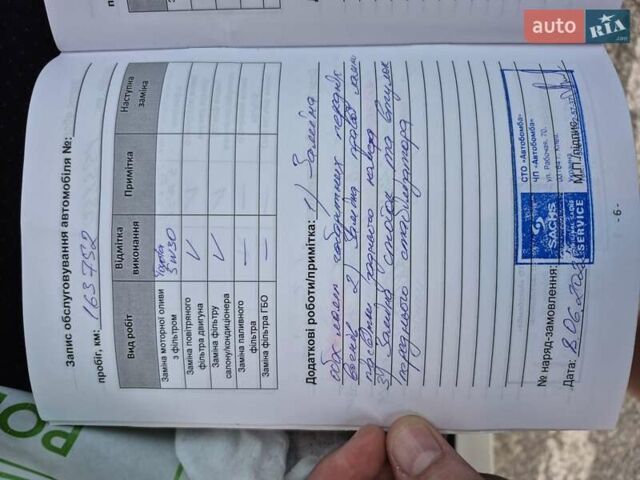 auto RIA
.com
Запис обслуговування автомобіля №:
пробіг, км: 163752
Вид робіт Відмітка виконання Примітка Наступна заміна
Заміна моторної оливи з фільтром Toyota 5W30
Заміна повітряного фільтра двигуна V
Заміна фільтру салону/кондиціонера V
Заміна паливного фільтра —
Заміна фільтра ГБО —
Додаткові роботи/примітка: 1) Заміна
ламп габаритних передніх
2) Заміна правої лампи
заднього хода
3) Заміна стойок та втулок
переднього стабілізатора
№ наряд-замовлення:
Дата: 8.06.202
М.П./підпис
SACHS
SERVICE
СТО «Автобомба»
ЧП «Автобомба»
ул. Рабочая, 70,
Украина
- 6 -